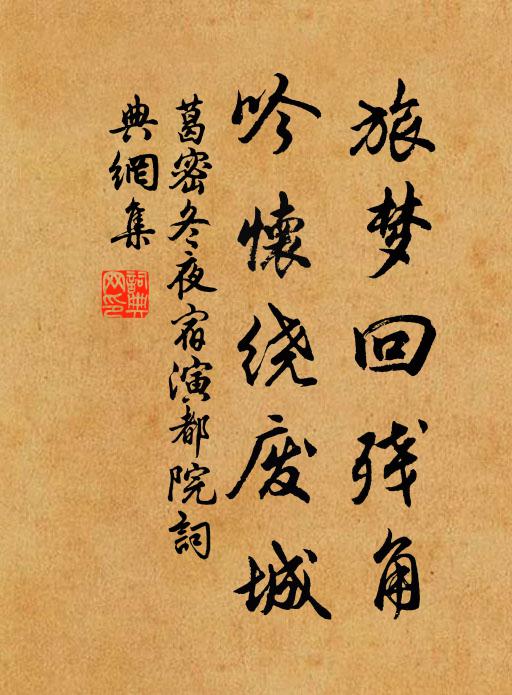 旅梦回残角
吟懷绕废城
葛密冬夜宿演都院詞
典網集
詞典网印